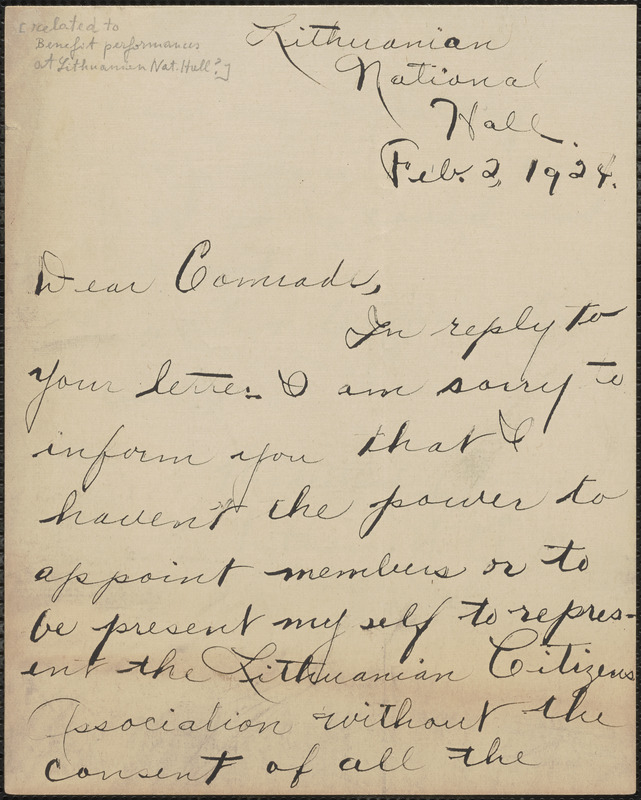 [related to
Benefit performances
at Lithuanian Nat. Hall?]
Lithuanian
National
Hall.
Feb. 2, 1924.
Dear Comrade,
In reply to
your letter I am sorry to
inform you that I
haven't the power to
appoint members or to
be present my self to repres-
ent the Lithuanian Citizens
Association without the
consent of all the